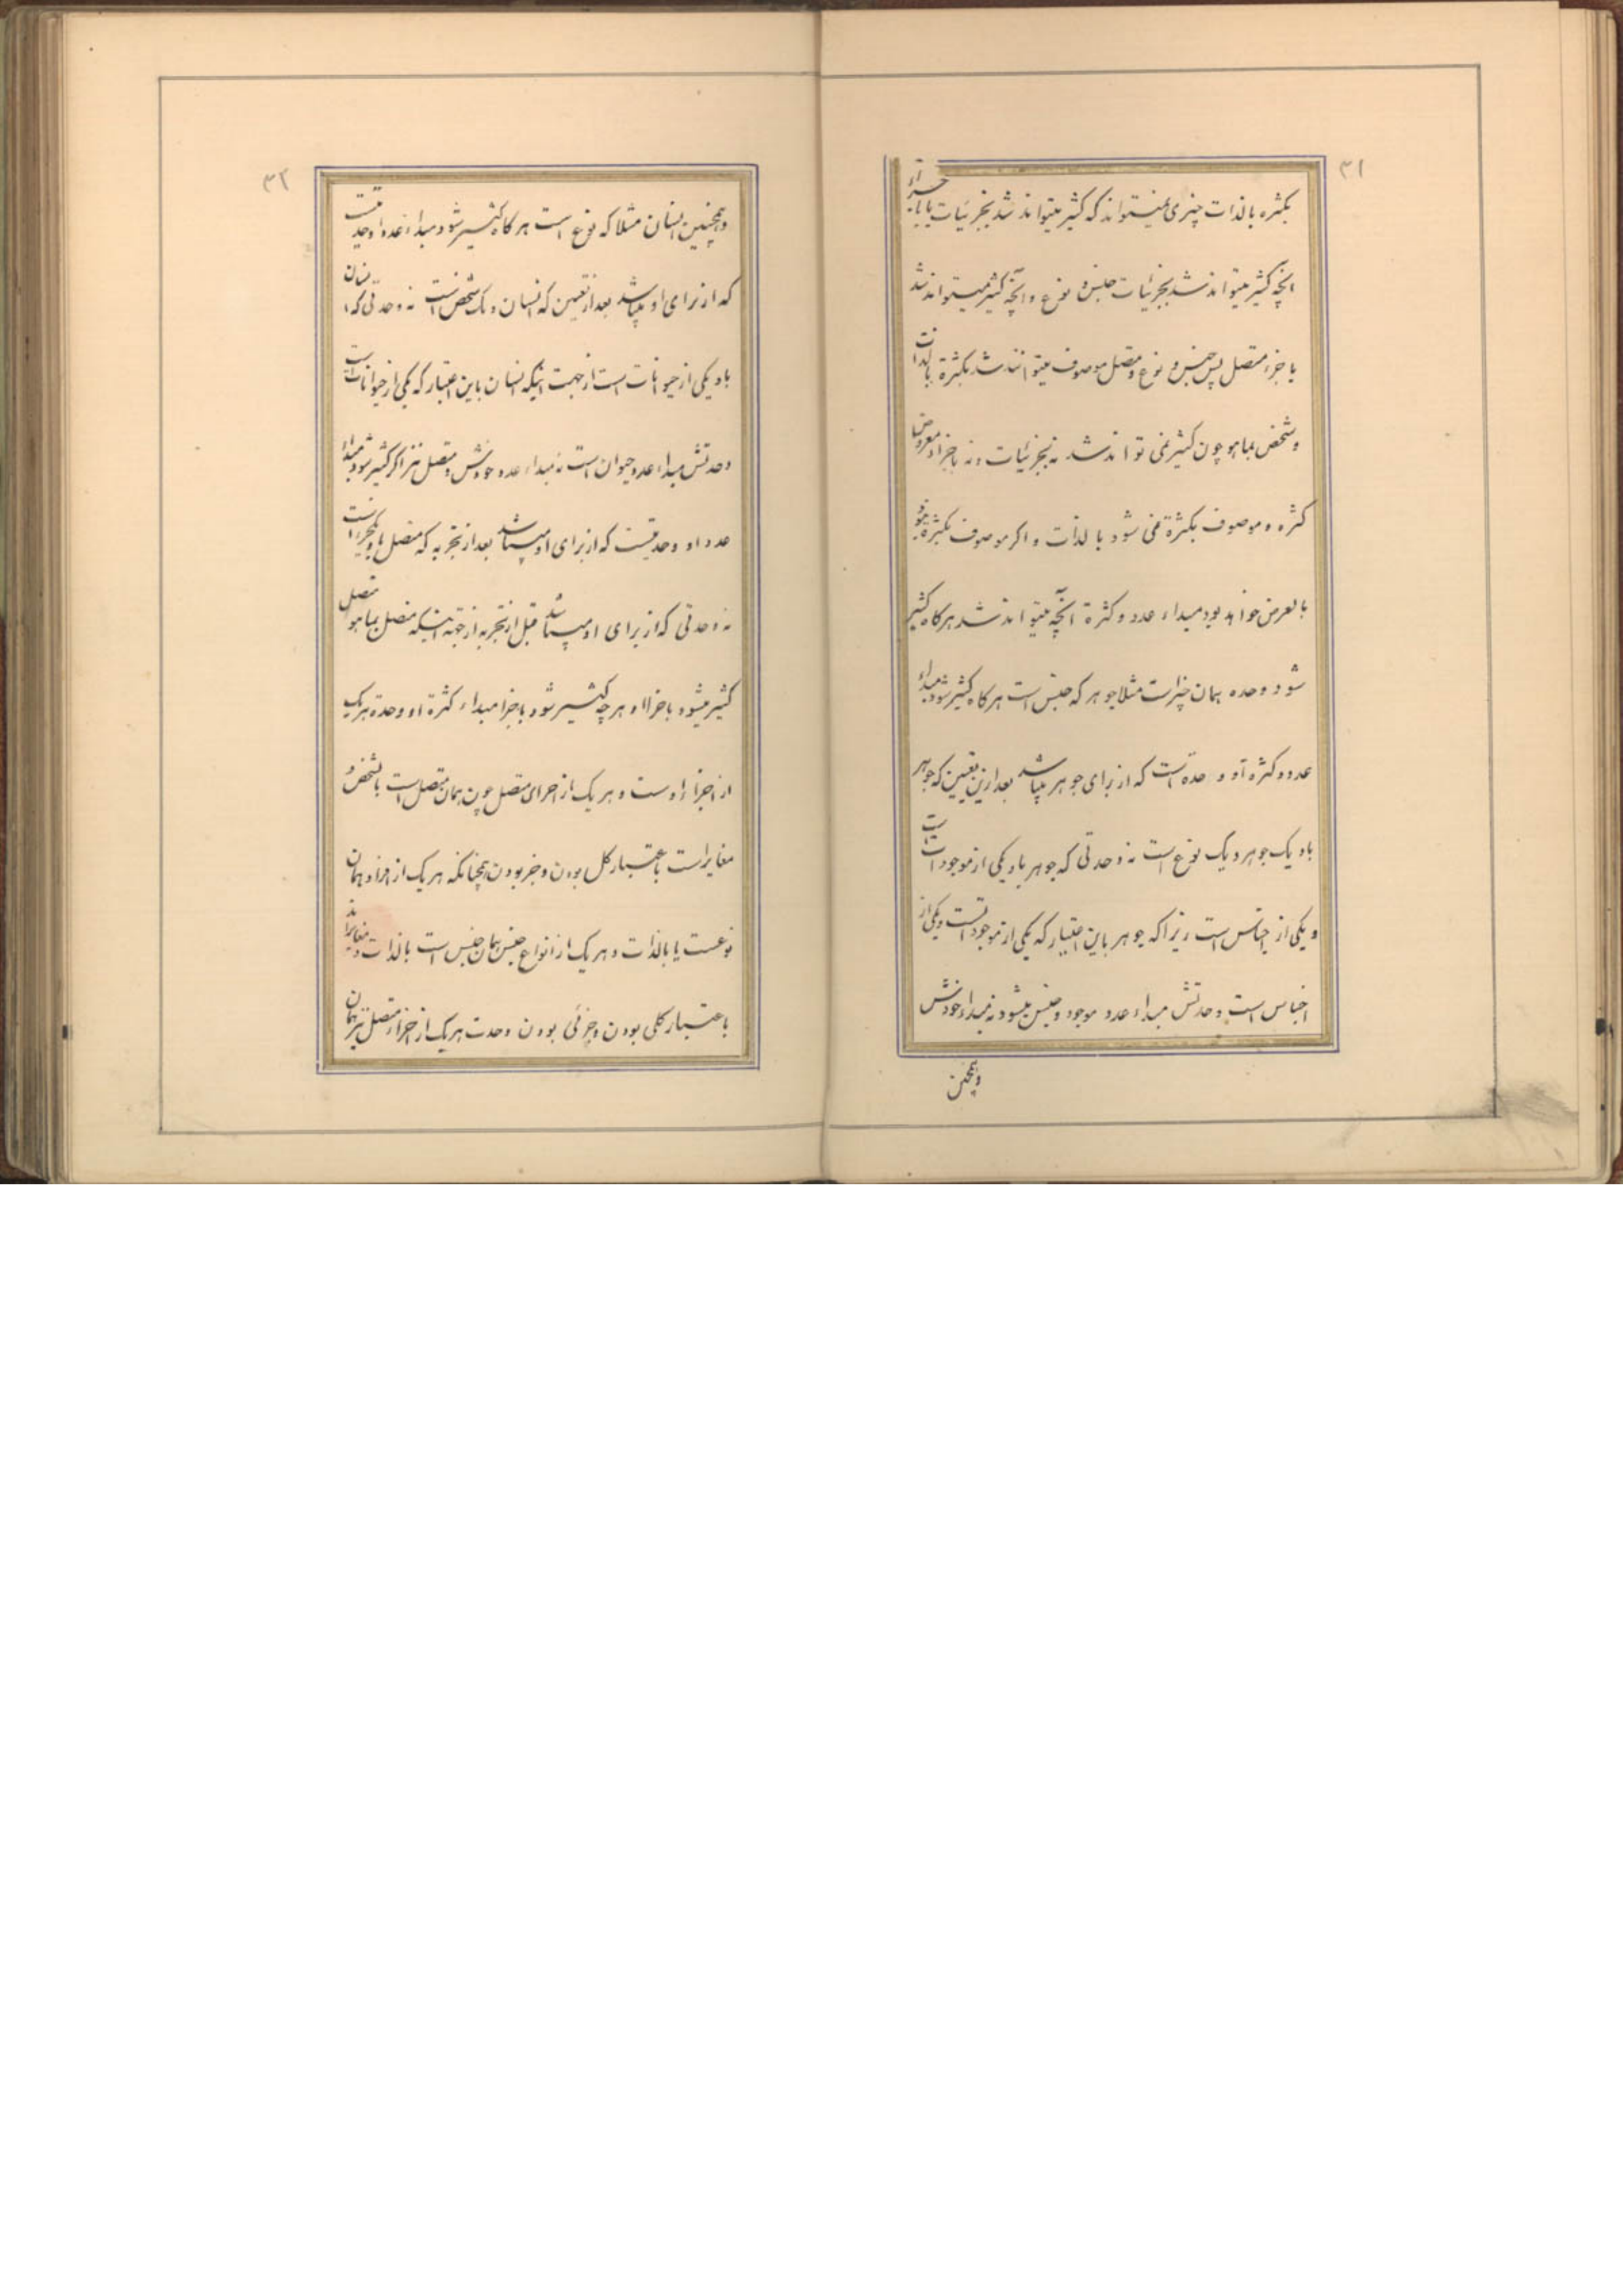 ۳۱
بکثره بالذات چیزی میتواند که کثیر میتواند شد بجزئیات یا باجزاء
انچه کثیر میتواند شد بجزئیات جنس و نوع و انچه کثیر میتواند شد
باجزاء متصل پس جنس و نوع و متصل موصوف میتوانند شد بکثرة بالذات
و شخص بما هو چون کثیر نمی تواند شد نه بجزئیات و نه باجزاء معروض
کثره و موصوف بکثرة نمی شود بالذات و اگر موصوف بکثرة شود
بالعرض خواهد بود مبداء عدد و کثرة انچه میتواند شد هرکاه کثیر
شود وحده همان چیز است مثلا جوهر که جنس است هرکاه کثیر شود مبداء
عدد و کثره او وحدة است که از برای جوهر میباشد بعد ازین تعیین که جوهر
باو یک جوهر و یک نوع است نه وحدتی که جوهر باو یکی از موجودات است
و یکی از اجناس است زیرا که جوهر باین اعتبار که یکی از موجوداتست و یکی از
اجناس است وحدتش مبداء عدد موجود و جنس میشود نه مبداء خودش
وهمچنین
۳۲
وهمچنین انسان مثلا که نوع است هرکاه کثیر شود مبداء عدد او وحدتیست
که از برای او میباشد بعد از تعیین که انسان و یک شخص است نه وحدتی که انسان
باو یکی از حیوانات است از جهت اینکه انسان باین اعتبار که یکی از حیوانات است
وحدتش مبداء عدد حیوان است نه مبداء عدد خودش و متصل نیز اکر کثیر شود مبداء
عدد او وحدتیست که از برای او میباشد بعد از تجزیه که متصل باو یکجزء است
نه وحدتی که از برای او میباشد قبل از تجزیه از جهة اینکه متصل بما هو متصل
کثیر میشود باجزا و هر چه کثیر شود باجزا مبداء کثرة او وحدة هر یک
از اجزاء اوست و هر یک از اجزای متصل چون همان متصل است بالشخص و
مغایر است باعتبار کل بودن و جزء بودن همچنانکه هر یک از افراد همان
نوعست یا بالذات و هر یک از انواع جنس همان جنس است بالذات و مغایراند
باعتبار کلی بودن و جزئی بودن وحدت هر یک از اجزاء متصل نیز همان